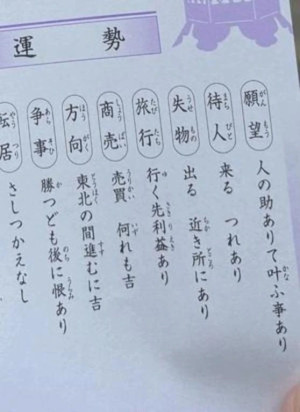 運勢
願望 人の助ありて叶ふ事あり
待人 来る つれあり
失物 出る 近き所にあり
旅行 行く先利益あり
商売 売買 何れも吉
方向 東北の間進むに吉
争事 勝つども後に恨あり
転居 さしつかえなし